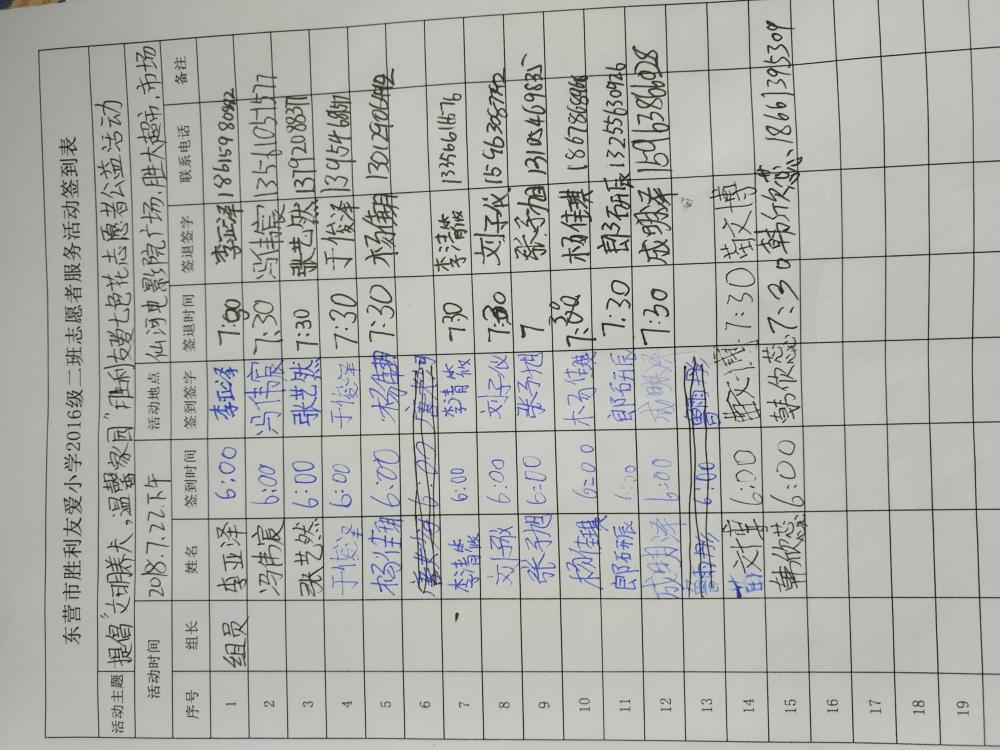 东营市胜利友爱小学2016级二班志愿者服务活动签到表
活动主题 提倡"文明养犬,温馨家园"胜利友爱七色花志愿者公益活动
活动时间 2018.7.22.下午 活动地点 仙河电影院广场.胜大超市.市场
序号 组长 姓名 签到时间 签到签字 签退时间 签退签字 联系电话 备注
1 组员 李亚泽 6:00 李亚泽 李亚泽
2 冯伟宸 6:00 冯伟宸 7:30 冯伟宸 13561051577
3 张艺然 6:00 张艺然 7:30 张艺然 13792088377
4 于俊泽 6:00 于俊泽 7:30 于俊泽
5 杨佳翔 6:00 杨佳翔 7:30 杨佳翔
6 6:00
7 李清筱 6:00 李清筱 730 李清筱
8 刘子仪 6:00 刘子仪 7:30 刘子仪
9 张予旭 6:00 张予旭 7 张予旭
10 杨佳琪 6:00 杨佳琪 7:30 杨佳琪
11 郎研辰 6:00 郎研辰 7:30 郎研辰 13255630926
12 成明泽 6:00 成明泽 7:30 成明泽 15963866928
13 6:00
14 苗文博 6:00 7:30 苗文博
15 韩欣蕊 6:00 韩欣蕊 7:30 韩欣蕊 18661395309
16
17
18
19